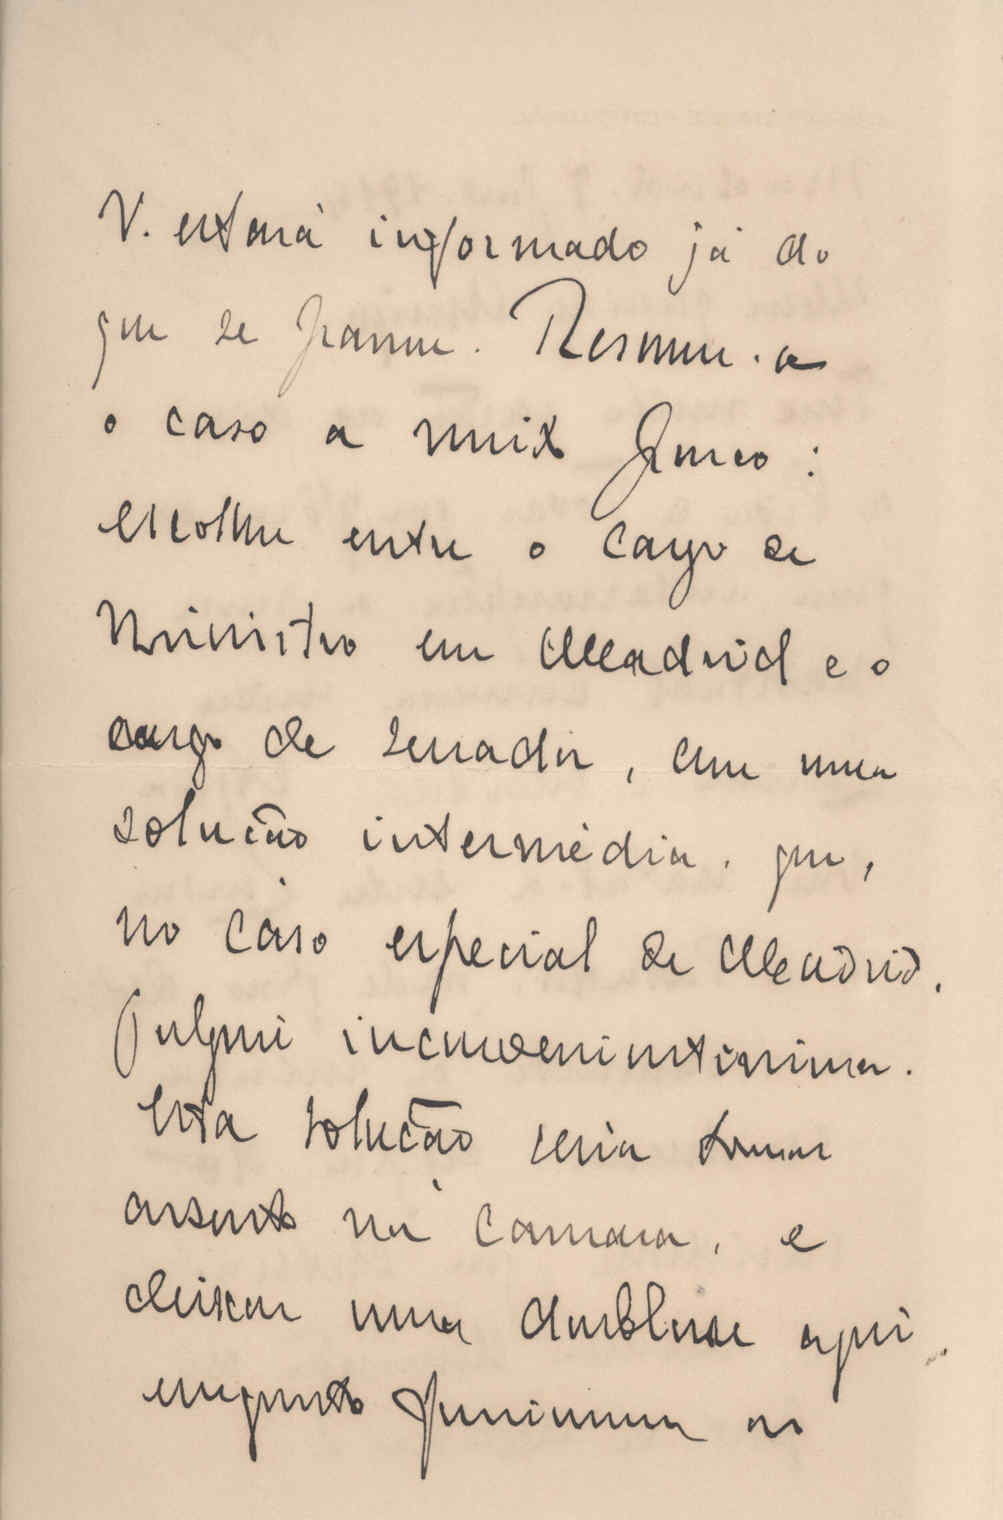 V. estará informado já do
que se passou. Resume-se
o caso a muito pouco:
escolher entre o cargo de
Ministro em Madrid e o
cargo de senador, com uma
solução intermédia, que,
no caso especial de Madrid,
julguei inconvenientissima.
Esta solução seria tomar
assento na Camara, e
deixar uma doublure aqui,
enquanto funcionava as